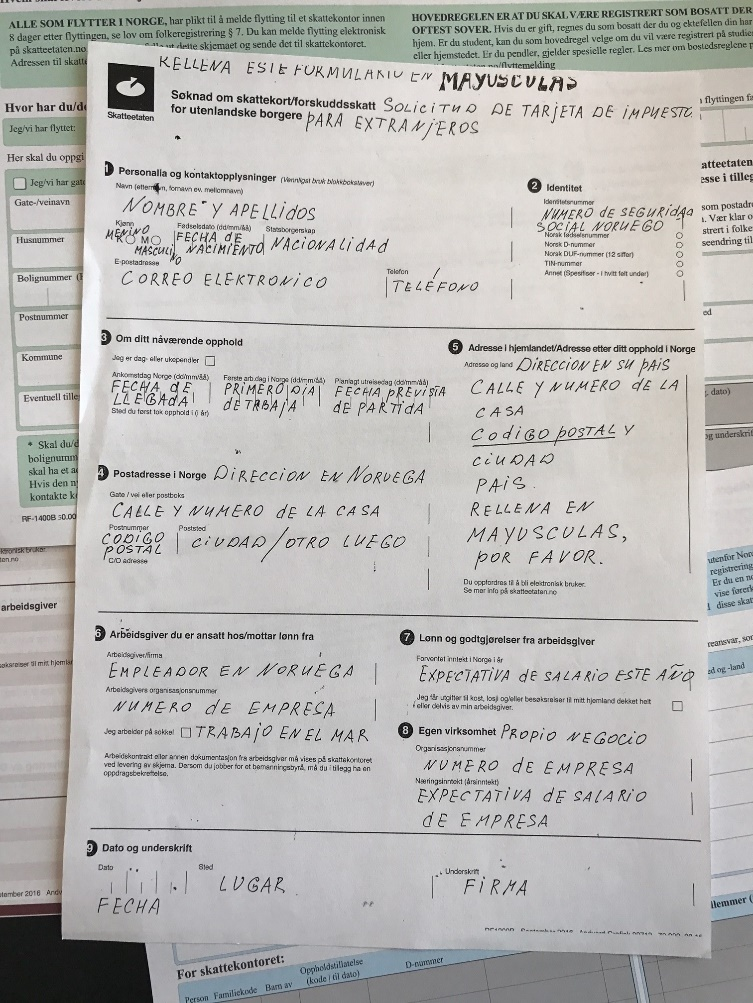 ALLE SOM FLYTTER I NORGE, har plikt til å melde flytting til et skattekontor innen
8 dager etter flytting, se lov om folkeregistrering § 7. Du kan melde flytting elektronisk
på skatteetaten.no.
dette skjemaet og sende det til skattekontoret.
Adressen til
HOVEDREGELEN ER AT DU SKAL VÆRE REGISTRERT SOM BOSATT DER
OFTEST SOVER. Hvis du er gift, regnes du som bosatt der du og ektefellen din har
hjem. Er du student, kan du som hovedregel velge om du vil være registrert på
eller hjemstedet. Er du pendler, gjelder spesielle regler. Les mer om bostedsreglene
Hvor har du/
Jeg/vi har flyttet:
Her skal du oppgi
Jeg/vi har
Gate-/veinavn
Husnummer
Bolignummer
Postnummer
Kommune
* Skal du/d
bolignumm
skal ha et a
Hvis den n
kontakte k
RF-1400B
arbeidsgiver
KELLENA ESTE FORMULARIO EN MAYUSCULAS
Skatteetaten
Søknad om skattekort/forskuddsskatt SOLICITUD DE TARJETA DE IMPUESTO
for utenlandske borgere PARA EXTRANJEROS
1 Personalia og kontaktopplysninger (Vennligst bruk blokkbokstaver)
Navn (etternavn, fornavn ev. mellomnavn)
NOMBRE Y APELLIDOS
Kjønn Fødselsdato (dd/mm/åå) Statsborgerskap
K M FECHA DE NACIONALIDAD
NACIMIENTO
E-postadresse Telefon
CORREO ELEKTRONICO TELÉFONO
2 Identitet
Identitetsnummer
NUMERO DE SEGURIDAD
SOCIAL NORUEGO
Norsk fødselsnummer
Norsk D-nummer
Norsk DUF-nummer (12 siffer)
TIN-nummer
Annet (Spesifiser - i hvitt felt under)
3 Om ditt nåværende opphold
Jeg er dag- eller ukependler
Ankomstdag Norge (dd/mm/åå) Første arb.dag i Norge (dd/mm/åå) Planlagt utreisedag (dd/mm/åå)
FECHA DE PRIMERO DIA FECHA PREVISTA
LLEGADA DE TRABAJA DE PARTIDA
Sted du først tok opphold i (i år)
4 Postadresse i Norge DIRECCION EN NORUEGA
Gate / vei eller postboks
CALLE Y NUMERO DE LA CASA
Postnummer Poststed
CODIGO CIUDAD/OTRO LUEGO
POSTAL
C/O adresse
5 Adresse i hjemlandet/Adresse etter ditt opphold i Norge
Adresse og land DIRECCION EN SU PAIS
CALLE Y NUMERO DE LA
CASA
CODIGO POSTAL Y
CIUDAD
PAIS.
RELLENA EN
MAYUSCULAS,
POR FAVOR.
Du oppfordres til å bli elektronisk bruker.
Se mer info på skatteetaten.no
6 Arbeidsgiver du er ansatt hos/mottar lønn fra
Arbeidsgiver/firma
EMPLEADOR EN NORUEGA
Arbeidsgivers organisasjonsnummer
NUMERO DE EMPRESA
Jeg arbeider på sokkel TRABAJO EN EL MAR
Arbeidskontrakt eller annen dokumentasjon fra arbeidsgiver må vises på skattekontoret
ved levering av skjema. Dersom du jobber for et bemanningsbyrå, må du i tillegg ha en
oppdragsbekreftelse.
7 Lønn og godtgjørelser fra arbeidsgiver
Forventet inntekt i Norge i år
EXPECTATIVA DE SALARIO ESTE AÑO
Jeg får utgifter til kost, losji og/eller besøksreiser til mitt hjemland dekket helt
eller delvis av min arbeidsgiver.
8 Egen virksomhet PROPIO NEGOCIO
Organisasjonsnummer
NUMERO DE EMPRESA
Næringsinntekt (årsinntekt)
EXPECTATIVA DE SALARIO
DE EMPRESA
9 Dato og underskrift
Dato Sted Underskrift
LUGAR FIRMA
FECHA
For skattekontoret:
Person Familiekode Barn av Oppholdstillatelse D-nummer
(kode / til dato)